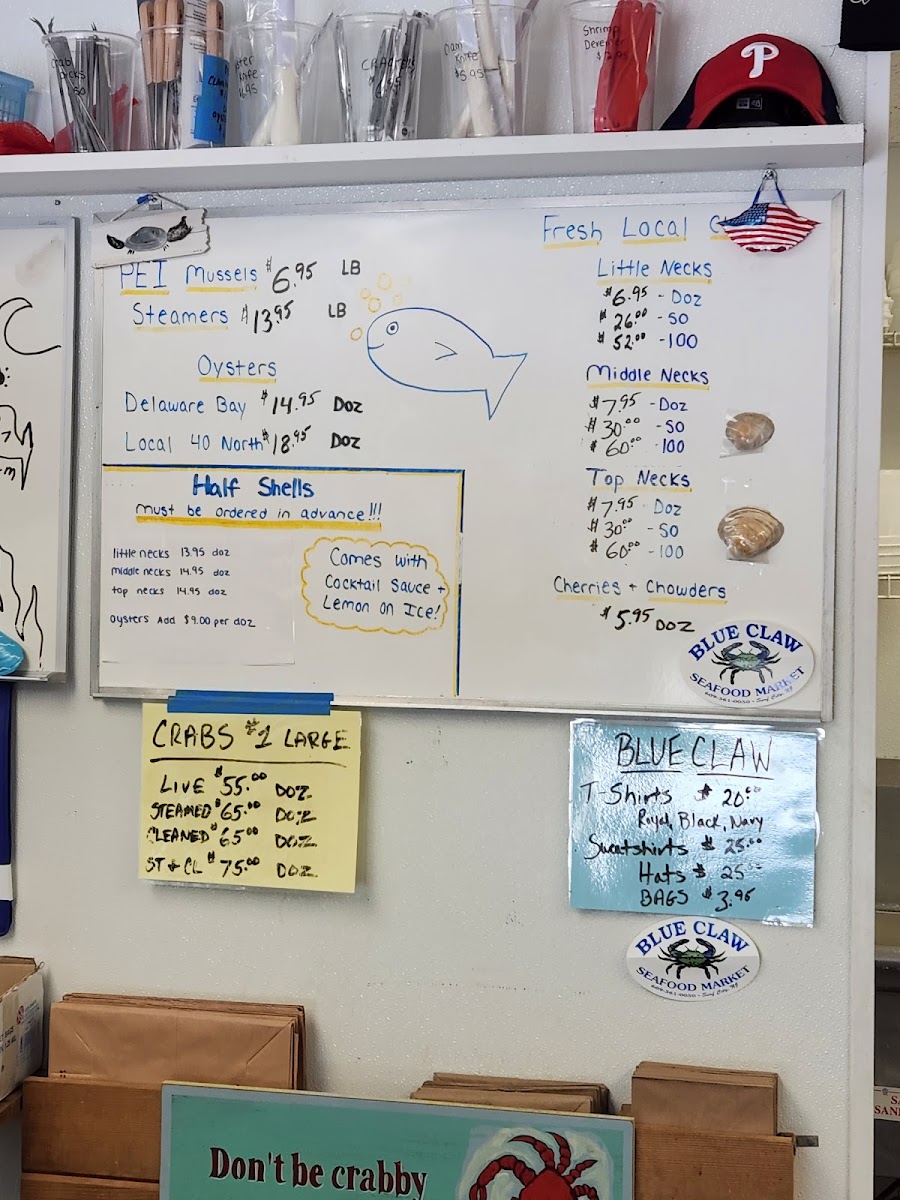 CRACKERS
Clam
Knife
$5.95
Shrimp
Deveiner
P
PEI Mussels $6.95 LB
Steamers $13.95 LB
Oysters
Delaware Bay $14.95 Doz
Local 40 North $18.95 Doz
Half Shells
must be ordered in advance!!!
little necks 13.95 doz
middle necks 14.95 doz
top necks 14.95 doz
oysters Add $9.00 per doz
Comes with
Cocktail Sauce +
Lemon on Ice!
Fresh Local
Little Necks
$6.95 - Doz
$26.00 - 50
$52.00 - 100
Middle Necks
$7.95 - Doz
$30.00 - 50
$60.00 - 100
Top Necks
$7.95 - Doz
$30.00 - 50
$60.00 - 100
Cherries + Chowders
$5.95 DOZ
BLUE CLAW
SEAFOOD MARKET
CRABS #1 LARGE
LIVE $55.00 DOZ
STEAMED $65.00 DOZ
CLEANED $65.00 DOZ
ST & CL $75.00 DOZ
BLUE CLAW
T-Shirts $20.00
Royal, Black, Navy
Sweatshirts $25.00
Hats $25.00
BAGS $3.95
BLUE CLAW
SEAFOOD MARKET
Don't be crabby